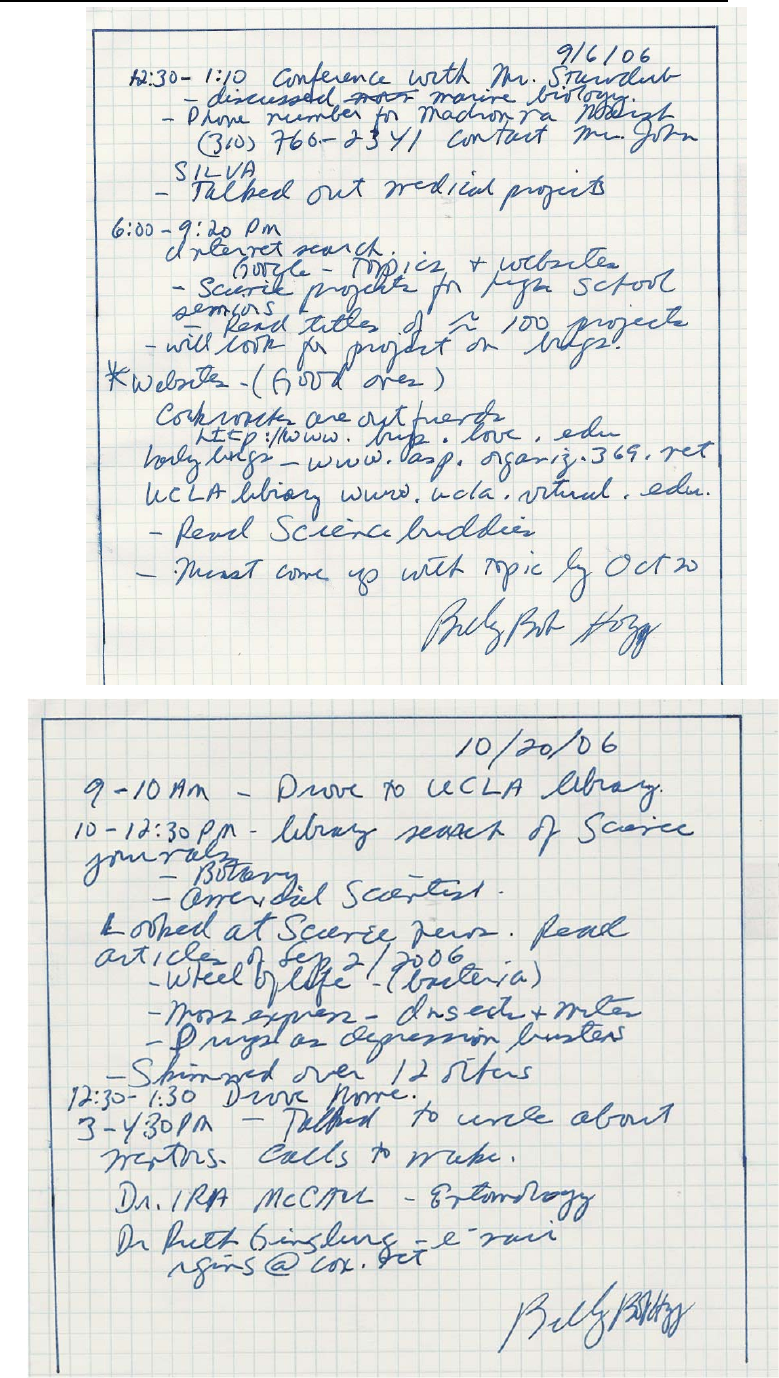 9/6/06
12:30- 1:10 Conference with Mr.
- discussed marine biology.
- Phone number for Madrona
(310) 766-2341 contact Mr. John
SILVA
- Talked out medical projects
6:00 - 9:20 Pm
Internet search.
Google - Topics + websites
- Science projects for high school
seniors
- Read titles of ≈ 100 projects
- will look for project on bugs.
* Websites - (Good ones)
Cockroaches are out friends
http://www. bugs. love. edu
body bugs - www. asp. organiz. 369. net
UCLA library www. ucla. virtual. edu.
- Read Science buddies
- Must come up with topic by Oct 20
Billy Bob Hozy
10/20/06
9-10 Am - Drove to UCLA library.
10-12:30 Pm - library search of Science
journals
- Botany
- American Scientist.
Looked at Science news. Read
articles of Sep 2/2006
- Wheel of life - (bacteria)
- Moss express - Insects + mites
- Drugs as depression busters
- Skimmed over 12 others
12:30- 1:30 Drove home.
3-430 PM - Talked to uncle about
mentors. Calls to make.
Dr. IRA McCALL - Entomology
Dr Ruth Ginsburg - e-mail
rgins@cox.net
Billy Bob Hozy